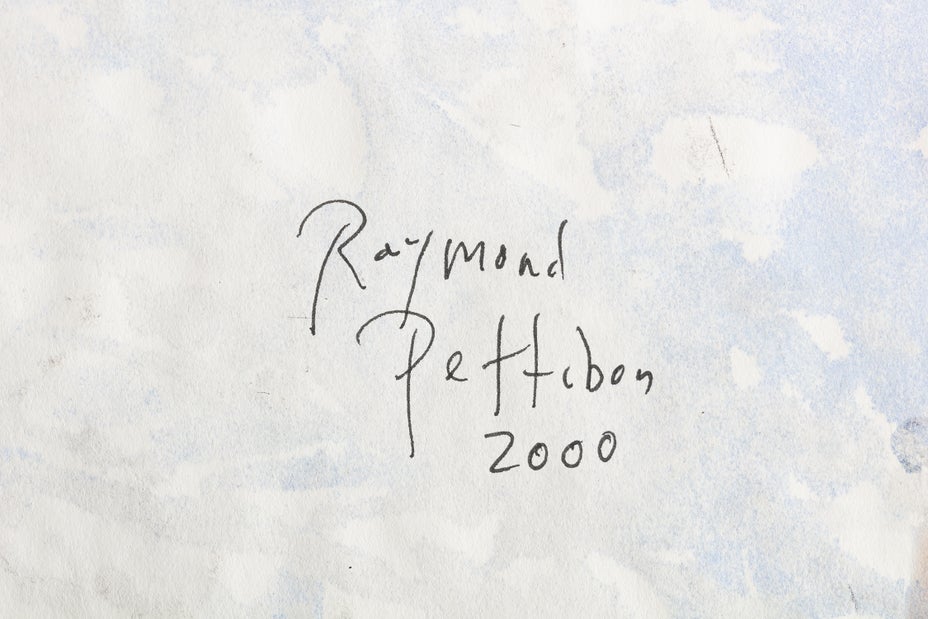 Raymond
Pettibon
2000